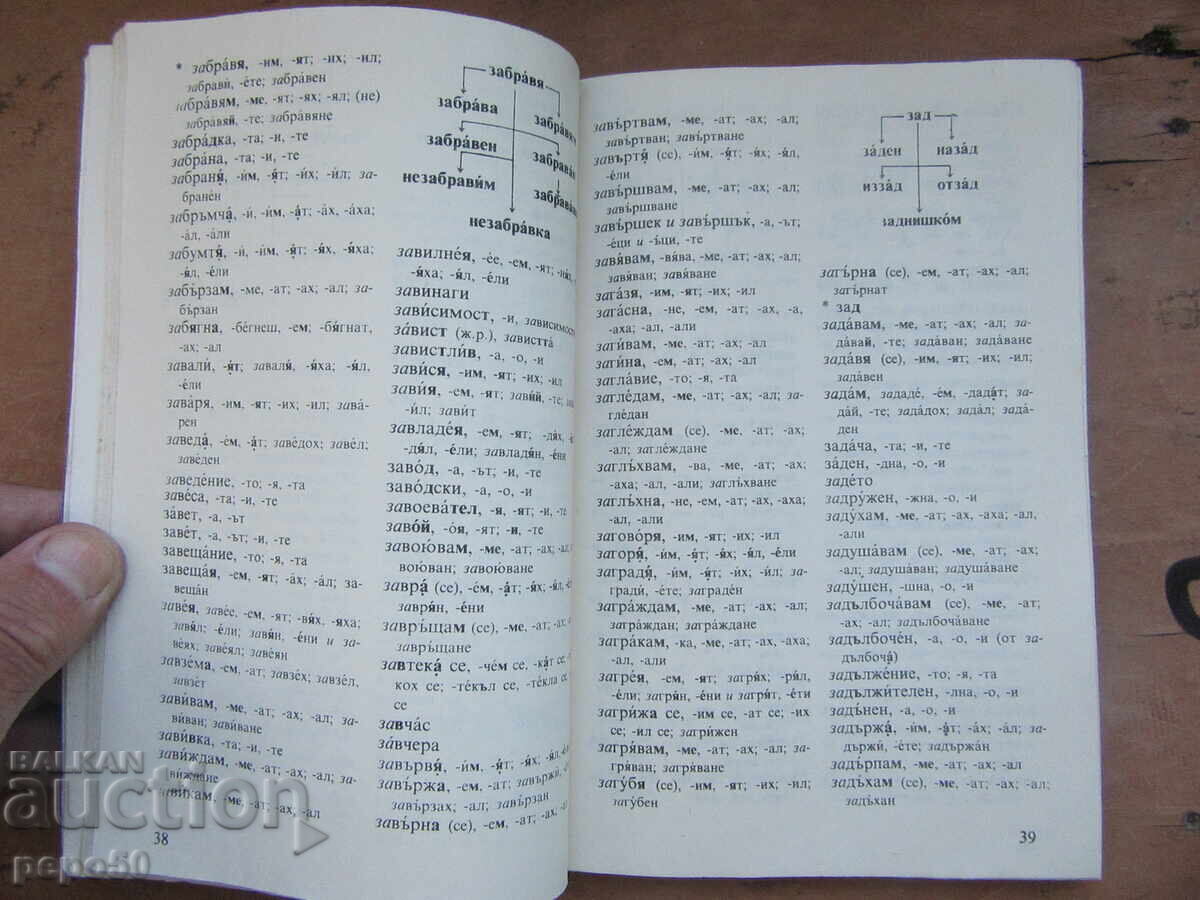 * забра́вя, -им, -ят; -их; -ил;
забрави́, -е́те; забра́вен
забра́вям, -ме, -ят; -ях; -ял; (не)
забра́вяй, -те; забра́вяне
забра́дка, -та; -и, -те
забра́на, -та; -и, -те
забраня́, -и́м, -я́т; -и́х; -и́л; за-
бране́н
забръмча́, -и́, -и́м, -а́т; -а́х, -а́ха;
-а́л, -а́ли
забумтя́, -и́, -и́м, -я́т; -я́х, -я́ха;
-я́л, -е́ли
забъ́рзам, -ме, -ат; -ах; -ал; за-
бъ́рзан
забя́гна, -бе́гнеш, -ем; -бя́гнат,
-ах; -ал
завали́, -я́т; заваля́, -я́ха; -я́л,
-е́ли
зава́ря, -им, -ят; -их; -ил; зава́-
рен
заведа́, -е́м, -а́т; заве́дох; заве́л;
заве́ден
заведе́ние, -то; -я, -та
заве́са, -та; -и, -те
за́вет, -а, -ът
заве́т, -а, -ът; -и, -те
завеща́ние, -то; -я, -та
завеща́я, -ем, -ят; -а́х; -а́л; за-
веща́н
заве́я, заве́е, -ем, -ят; -вя́х, -я́ха;
-завя́л; -е́ли; завя́н, -е́ни и за-
ве́ях; заве́ял; заве́ян
завзе́ма, -ем, -ат; завзе́х; завзе́л,
завзе́т
зави́вам, -ме, -ат; -ах; -ал; за-
ви́ван; зави́ване
зави́вка, -та; -и, -те
зави́ждам, -ме, -ат; -ах; -ал; за-
ви́ждане
зави́кам, -ме, -ат; -ах; -ал
забра́вя
забра́ва
забра́вен
незабрави́м
незабра́вка
завилне́я, -е́е, -ем, -ят;
-я́ха; -я́л, -е́ли
завинаги
зави́симост, -и, зависимост
за́вист (ж.р.), завистта́
завистли́в, -а, -о, -и
зави́ся, -им, -ят; -их; -ил
зави́я, -ем, -ят; зави́й, -те;
-и́л; зави́т
завладе́я, -ем, -ят; -дя́х,
-дя́л, -е́ли; завладя́н, -е́ни
заво́д, -а, -ът; -и, -те
заво́дски, -а, -о, -и
завоева́тел, -я, -ят; -и, -те
заво́й, -о́я, -ят; -и, -те
завою́вам, -ме, -ат; -ах; -ал
вою́ван; завою́ване
завра́ (се), -е́м, -а́т; -я́х; -я́л
завря́н, -е́ни
завръ́щам (се), -ме, -ат; -ах;
завръ́щане
завтека́ се, -че́м се, -ка́т се
кох се; -те́къл се, -те́кла се
се
завча́с
за́вчера
завървя́, -и́м, -я́т; -я́х, -я́л,
завъ́ржа, -ем, -ат; завържи́,
завъ́рзах; -ал; завъ́рзан
завъ́рна (се), -ем, -ат, -ах,
38
завъ́ртвам, -ме, -ат; -ах; -ал;
завъ́ртван; завъ́ртване
завъртя́ (се), -и́м, -я́т; -я́х; -я́л,
-е́ли
завъ́ршвам, -ме, -ат; -ах; -ал;
завъ́ршване
завъ́ршек и завъ́ршък, -а, -ът;
-еци и -ъци, -те
завя́вам, -вя́ва, -ме, -ат; -ах; -ал;
завя́ван; завя́ване
зага́зя, -им, -ят; -их; -ил
зага́сна, -не, -ем, -ат; -ах, -а,
-аха; -ал, -али
заги́вам, -ме, -ат; -ах; -ал
заги́на, -ем, -ат; -ах; -ал
загла́вие, -то; -я, -та
загле́дам, -ме, -ат; -ах; -ал; за-
гле́дан
загле́ждам (се), -ме, -ат; -ах;
-ал; загле́ждане
заглъ́хвам, -ва, -ме, -ат; -ах;
-аха; -ал, -али; заглъ́хване
заглъ́хна, -не, -ем, -ат; -ах, -аха;
-ал, -али
загово́ря, -им, -ят; -их; -ил
загоря́, -и́м, -я́т; -я́х; -я́л, -е́ли
заградя́, -и́м, -я́т; -и́х; -и́л; за-
гради́, -е́те; заграде́н
загра́ждам, -ме, -ат; -ах; -ал;
загра́ждан; загра́ждане
загра́кам, -ка, -ме, -ат; -ах, -аха;
-ал, -али
загре́я, -ем, -ят; загря́х; -ря́л,
-е́ли; загря́н, -е́ни и загря́т, -е́ти
загри́жа се, -им се, -ат се; -их
се; -ил се; загри́жен
загря́вам, -ме, -ат; -ах; -ал; за-
гря́ван; загря́ване
загу́бя (се), -им, -ят; -их; -ил;
загу́бен
зад
за́ден наза́д
изза́д отза́д
заднишко́м
загъ́рна (се), -ем, -ат; -ах; -ал;
загъ́рнат
* зад
зада́вам, -ме, -ат; -ах; -ал; за-
да́вай, -те; зада́ван; зада́ване
зада́вя (се), -им, -ят; -их; -ил;
зада́вен
зада́м, зададе́, -е́м, -дада́т; за-
да́й, -те; зада́дох; зада́л; зада́-
ден
зада́ча, -та; -и, -те
за́ден, -дна, -о, -и
заде́то
задру́жен, -жна, -о, -и
заду́хам, -ме, -ат; -ах, -аха; -ал,
-али
задуша́вам (се), -ме, -ат; -ах;
-ал; задуша́ван; задуша́ване
заду́шен, -шна, -о, -и
задълбоча́вам (се), -ме, -ат;
-ах; -ал; задълбоча́ване
задълбоче́н, -а, -о, -и (от за-
дълбоча́)
задълже́ние, -то; -я, -та
задължи́телен, -лна, -о, -и
задъ́нен, -а, -о, -и
задържа́, -и́м, -а́т; -а́х; -а́л; за-
дръжи́, -е́те; задържа́н
задъ́рпам, -ме, -ат; -ах; -ал
задъ́хам (се), -ме, -ат; -ах; -ал;
задъ́хан
39
BALKAN
auction
pepo50